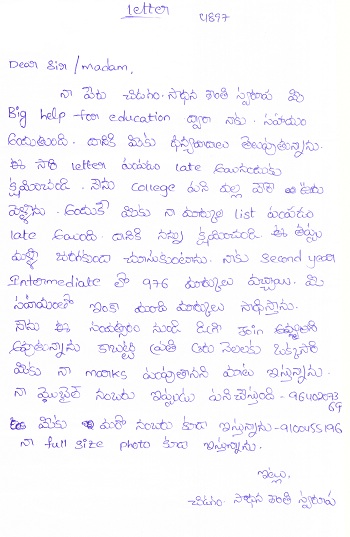 Letter 4897
Dear Sir / madam,
నా పేరు చిడగం. సాధన శాంతి స్వరూప మీ
Big help for education ద్వారా నాకు. సహాయం
అందుతుంది. దానికి మీకు ధన్యవాదాలు తెలుపుతున్నాను.
ఈ సారి letter పంపడం late అయినందుకు
క్షమించండి. నేను College పని వల్ల వేరే ఊరు
వెళ్ళాను. అందుకే మీకు నా మార్కుల list పంపడం
late అయింది. దానికి నన్ను క్షమించండి. ఈ తప్పు
మళ్ళీ జరగకుండా చూసుకుంటాను. నాకు Second year
Intermediate లో 976 మార్కులు వచ్చాయి. మీ
సహాయంతో ఇంకా మంచి మార్కులు సాధిస్తాను.
నేను ఈ సంవత్సరం నుండి డిగ్రీ join
అవుతున్నాను కాబట్టి ప్రతి ఆరు నెలలకు ఒక్కసారి
మీకు నా marks పంపుతానని మాట ఇస్తున్నాను.
నా మొబైల్ నంబరు ఇప్పుడు పని చేస్తుంది - 96402093
69
మీకు మరో నంబరు కూడా ఇస్తున్నాను - 9100455196
నా full size photo కూడా ఇస్తున్నాను.
ఇట్లు,
చిడగం. సాధన శాంతి స్వరూప